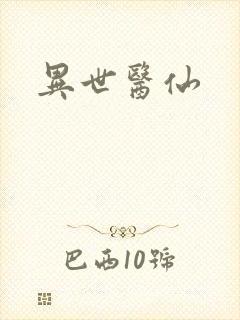 異世醫仙
巴西10號